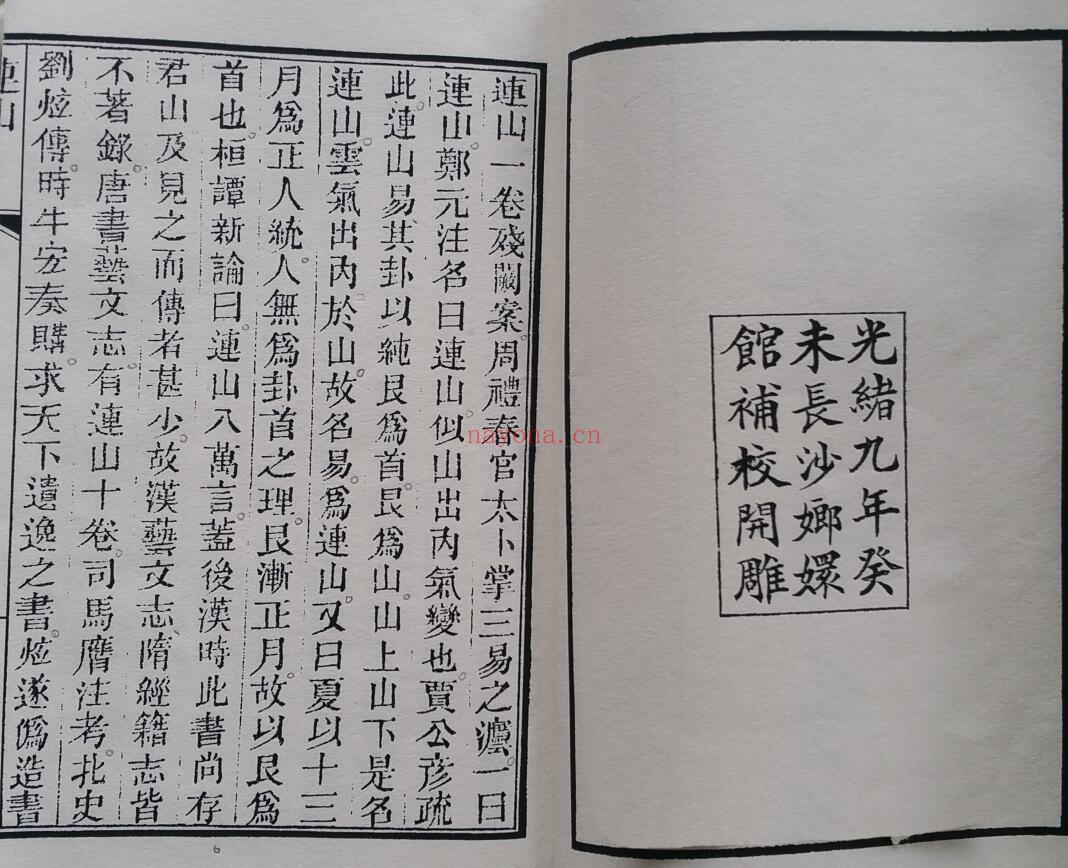 光緒九年癸
未長沙嫏嬛
館補校開雕
連山一卷殘闕案周禮春官太卜掌三易之灋一曰
連山鄭元注名曰連山似山出內氣變也賈公彥疏
此連山易其卦以純艮爲首艮爲山山上山下是名
連山雲氣出內於山故名易爲連山又曰夏以十三
月爲正人統人無爲卦首之理艮漸正月故以艮爲
首也桓譚新論曰連山八萬言蓋後漢時此書尚存
君山及見之而傳者甚少故漢藝文志隋經籍志皆
不著錄唐書藝文志有連山十卷司馬膺注考北史
劉炫傳時牛宏奏購求天下遺逸之書炫遂僞造書
連山
nayona.cn